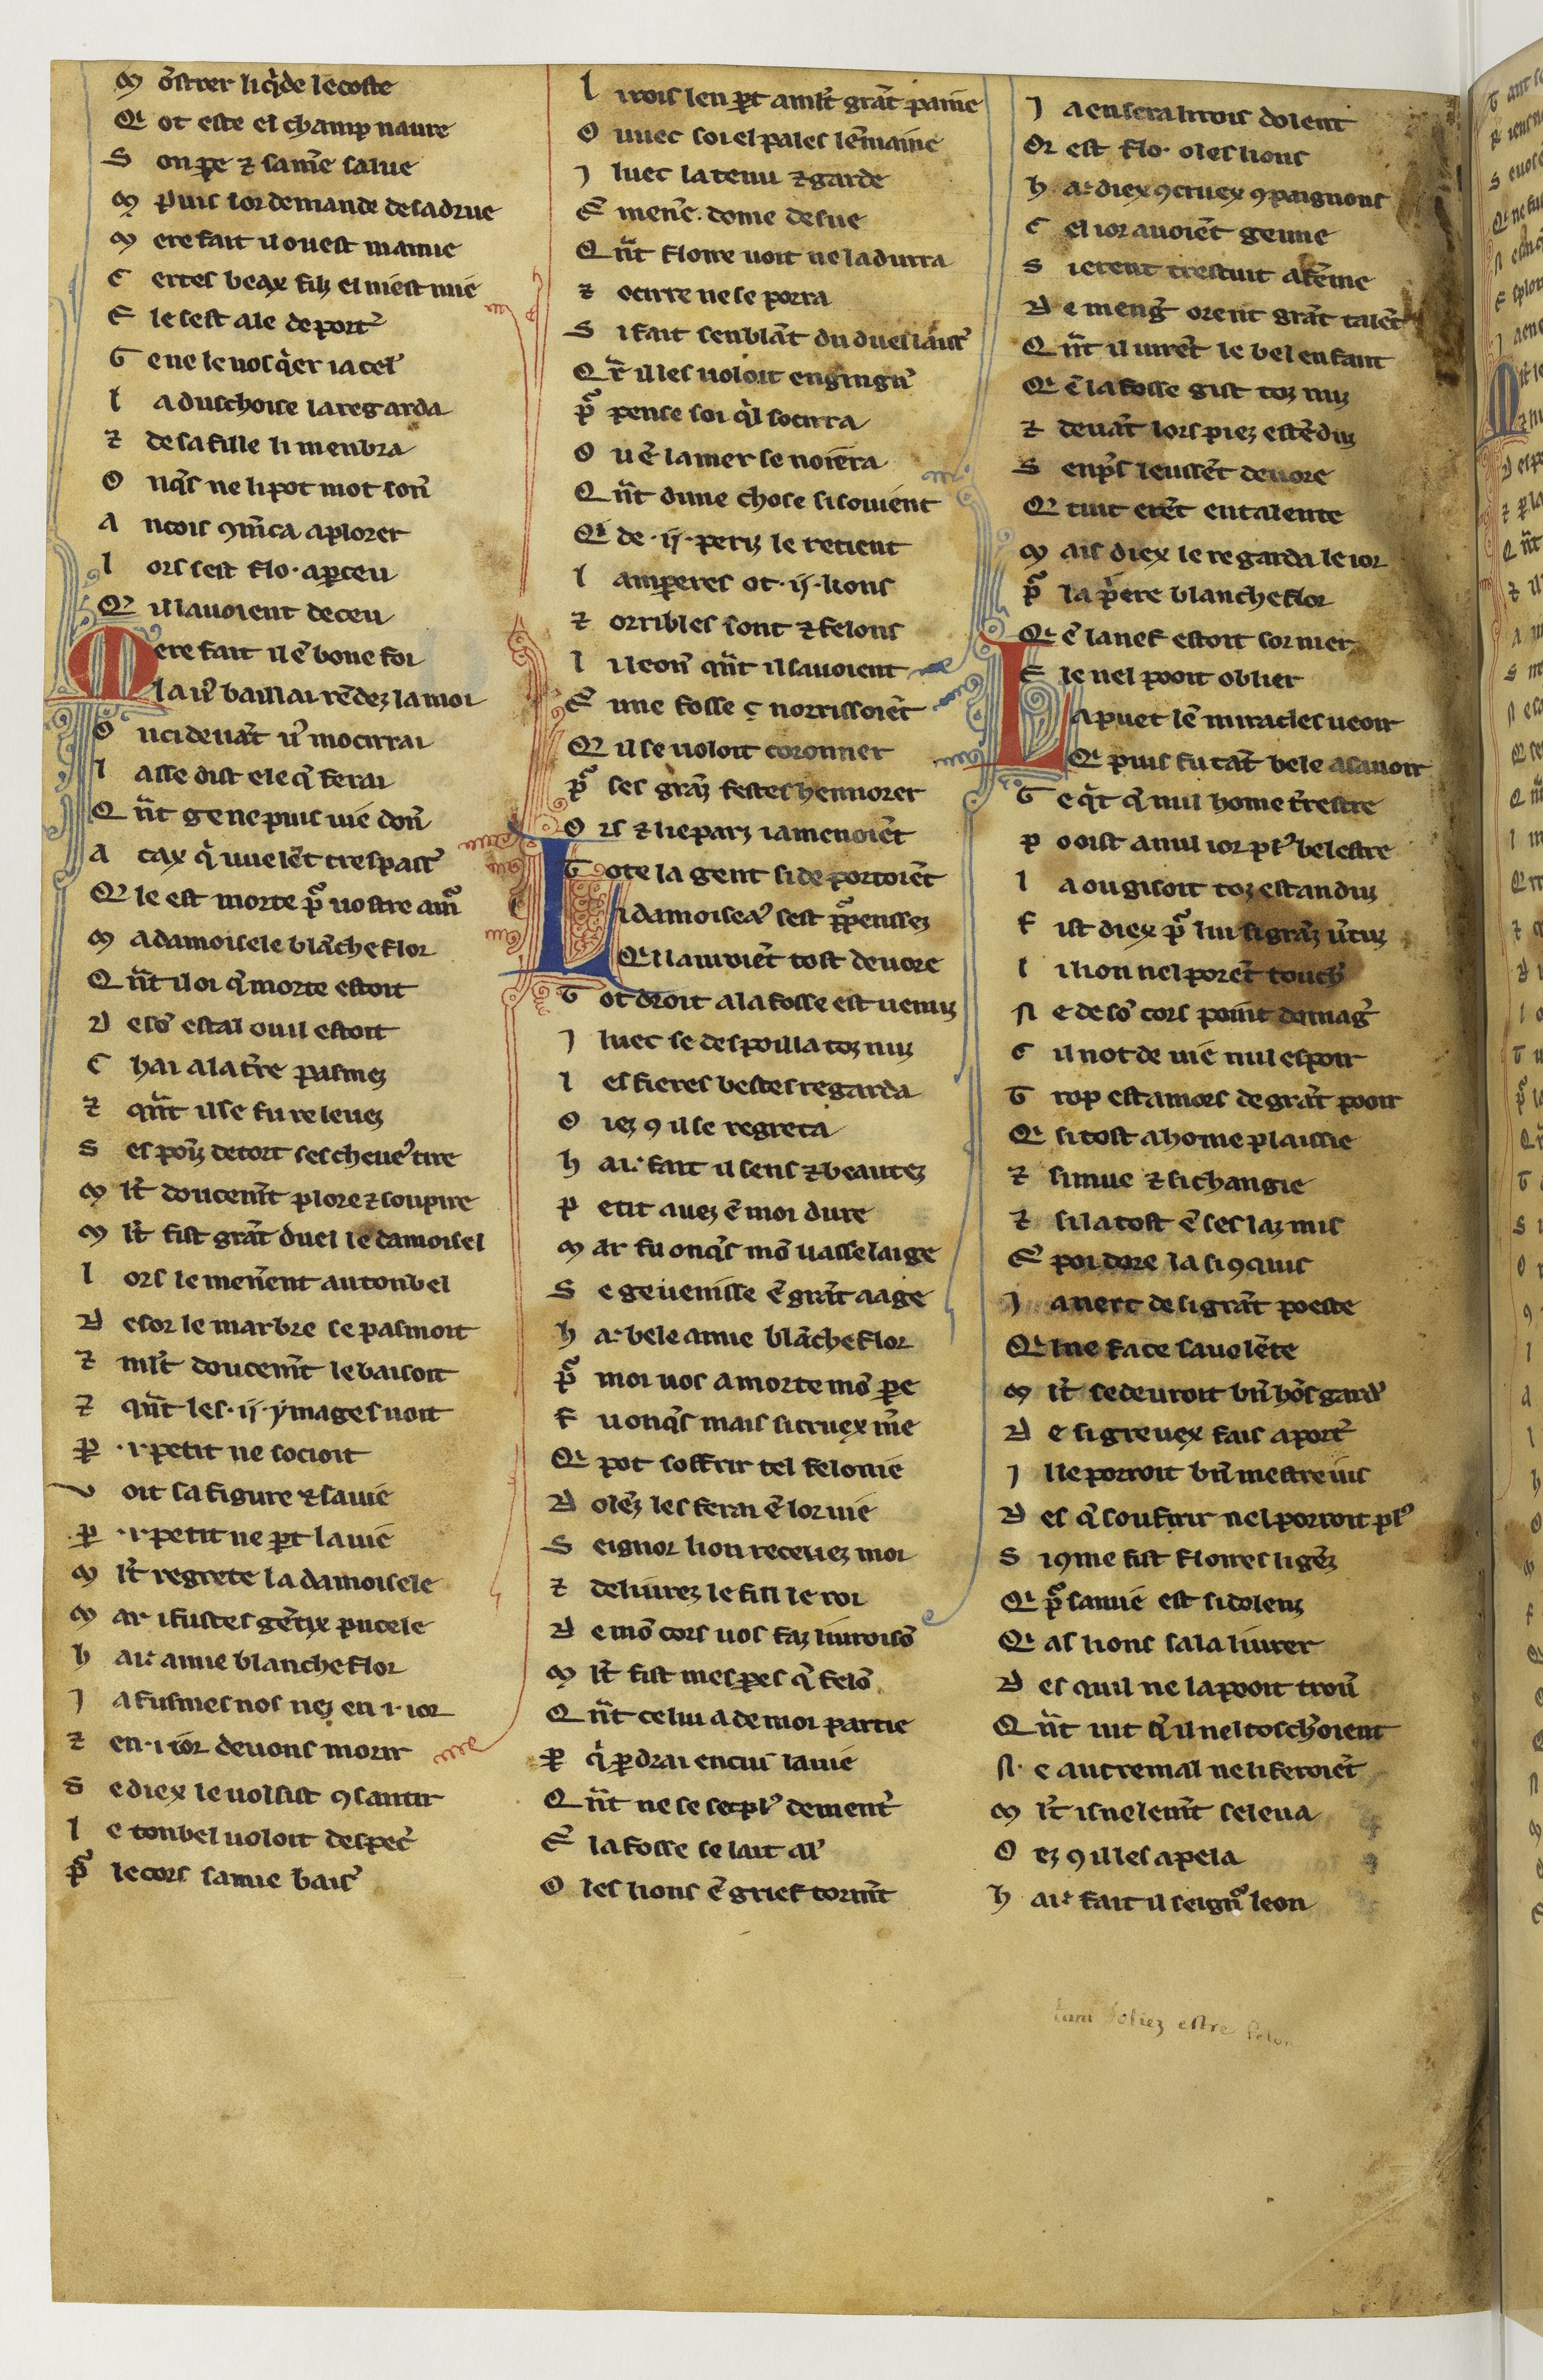 M õstrer li q̃ de le coste
Q'ot este el champ naure
S on pe ⁊ sa m̃e salue
M puis lor demande de sa drue
M ere fait il ou est mamie
C ertes beax filz el niest mie
E le sest ale deport̃
G e ne le uos q̃er iacel'
L a duschoise la regarda
⁊ de sa fille li menbra
O nq̃s ne li pot mot son̄
A ncois ꝯm̃ca a plorer
L ors sest flo· aꝑceu
Q' il lauoient deceu
M ere fait il ẽ bone foi
La u̾ baillai rẽdez la moi
O u ci deuãt u̾ mocirrai
L asse dist ele q̃ ferai
Q ñt ge ne puis uie don̄
A cax q̃ uuelẽt trespass̾
Q' le est morte p̃ uostre am̃
M adamoisele blãcheflor
Q ñt il oi q̃ morte estoit
D e sõ estal ou il estoit
C hai a la t̃re pasmez
⁊ qñt il se fu releuez
S es poīz detort ses cheue̾ tire
M lt̃ doucem̃t plore ⁊ soupire
M lt̃ fist grãt duel le damoisel
L ors le men̄ent au tonbel
D esor le marbre se pasmoit
⁊ mlt̃ doucem̃t le baisoit
⁊ qñt les ·ij· ymages uoit
P ·i· petit ne socioit
V oit sa figure ⁊ sa uie
P ·i· petit ne ꝑt la uie
M lt̃ regrete la damoisele
M ar i fustes gẽtix pucele
H ai· amie blancheflor
J a fusmes nos nez en ·i· ior
⁊ en ·i· ior deuons morir
S e diex le uolsist ꝯsantir
L e tonbel uoloit despec̾
P̃ le cors samie bais̾
L irois len ꝑt a mlt̃ grãt paine
O uuec soi el pales lẽmaine
J luec la tenu ⁊ garde
E men̄c· dome de sue
Q ñt floire uoit ne la durra
⁊ ocirre ne se porra
S i fait senblãt du duel laiss̾
Q r̃ il les uoloit engingn̾
P̃ pense soi q̃l socirra
O u ẽ la mer se noiera
Q ñt dune chose si souient
Q' de ·ij· periz le retient
L amperes ot ·ij· lions
⁊ orribles sont ⁊ felons
L i leon̄ qñt il sauoient
E une fosse ꝯ norrissoiẽt
Q' il se uoloit coronner
P̃ ses grãz festes hennorer
O rs ⁊ liepars i amenoiẽt
T ote la gent si deportoiẽt
Li damoisea̾ sest pp̃ensez
Q' il lauroiẽt tost deuore
T ot droit a la fosse est uenuz
J luec se despoilla toz nuz
L es fieres bestes regarda
O iez ꝯ il se regreta
H ai· fait il sens ⁊ beautez
P etit auez ẽ moi dure
M ar fu onq̃s mõ uasselaige
S e ge uenisse ẽ grãt aage
H a· bele amie blãcheflor
P̃ moi uos a morte mõ pe
F u onq̃s mais si cruex m̃e
Q' pot soffrir tel felonie
D olẽz les ferai ẽ lor uie
S eignor lion receuez moi
⁊ deliurez le fill le roi
D e mõ cors uos faz liuroisõ
M lt̃ fist mes pes q̃ felõ
Q ñt celui a de moi partie
P q̃ ꝑdrai encui la uie
Q ñt ne se set pl̾ dement̾
E la fosse se lait al̾
O les lions ẽ grief torm̃t
J a en sera li rois dolent
Or est flo· o les lions
H a· diex ꝯ cruex ꝯpaignons
C el ior auoiẽt geune
S i erent trestuit afẽme
D e meng̾ orent grãt talẽt
Q ñt il uirẽt le bel enfant
Q' ẽ la fosse gist toz nuz
⁊ deuãt lors piez estẽduz
S enp̃s leussẽt deuore
Q' tuit erẽt entalente
M ais diex le regarda le ior
P̃ la p̃ere blancheflor
Q' ẽ la nef estoit sor mer
E le nel pooit oblier
La puet lẽ miracles ueoir
Q' puis fu tãt bele a sauoir
T e q̃t q̃ nul home t̃restre
P ooist a nul ior pl̾ bel estre
L a ou gisoit toz estanduz
F ist diex p̃ lui si grãz u̾tuz
L i lion nel porẽt touch̾
N e de sõ cors point damag̾
C il not de uie nul espoir
T rop est amors de grãt pooir
Q' si tost a home plaissie
⁊ si mue ⁊ si changie
⁊ si la tost ẽ ses laz mis
E poi dore la si ꝯquis
J a nert de si grãt poeste
Q' lne face sa uolẽte
M lt̃ se deuroit bñ hõs gard̾
D e si greuex fais a port̾
J l le porroit bñ mestre ius
D es q̃ soufrir nel porroit pl̾
S i ꝯme fist floires li gẽz
Q' p̃ samie est si dolenz
Q' as lions sala liurer
D es quil ne la pooit trou̾
Q ñt uit q̃ il nel toscħoient
N e autre mal ne li feroiẽt
M lt̃ isnelem̃t se leua
O ez ꝯ il les apela
H ai· fait il seign̾ leon
tant soliez estre felon